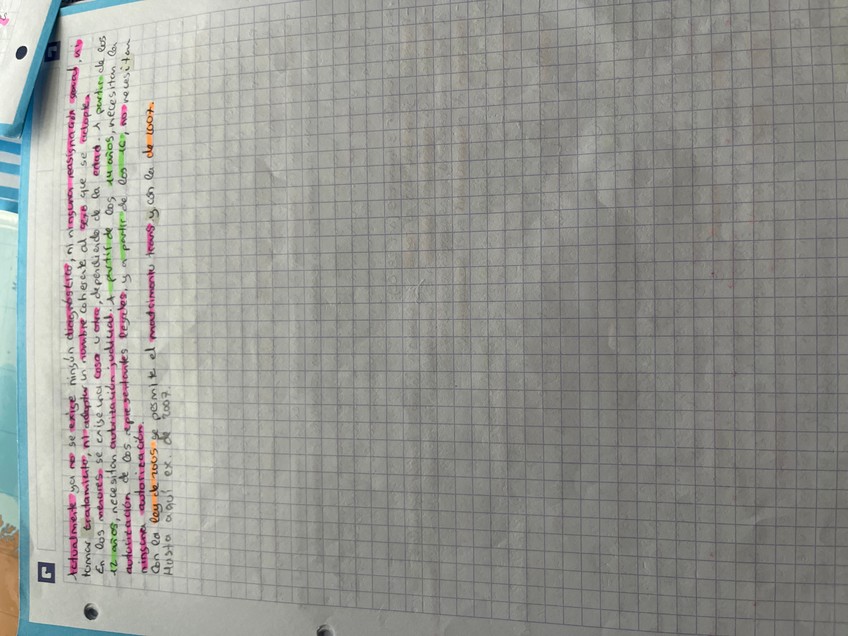 Actualmente ya no se exige ningún diagnóstico, ni ninguna reasignación sexual, ni
tomar tratamiento, ni adoptar un nombre coherente al sexo que se adopte.
En los menores se exige una cosa u otra, dependiendo de la edad. A partir de los
12 años, necesitan autorización judicial. A partir de los 14 años, necesitan la
autorización de los representantes legales, y a partir de los 16, no necesitan
ninguna autorización.
Con la ley de 2005 se permite el matrimonio trans y con la de 2007.
Hasta aquí ex. de 2007.